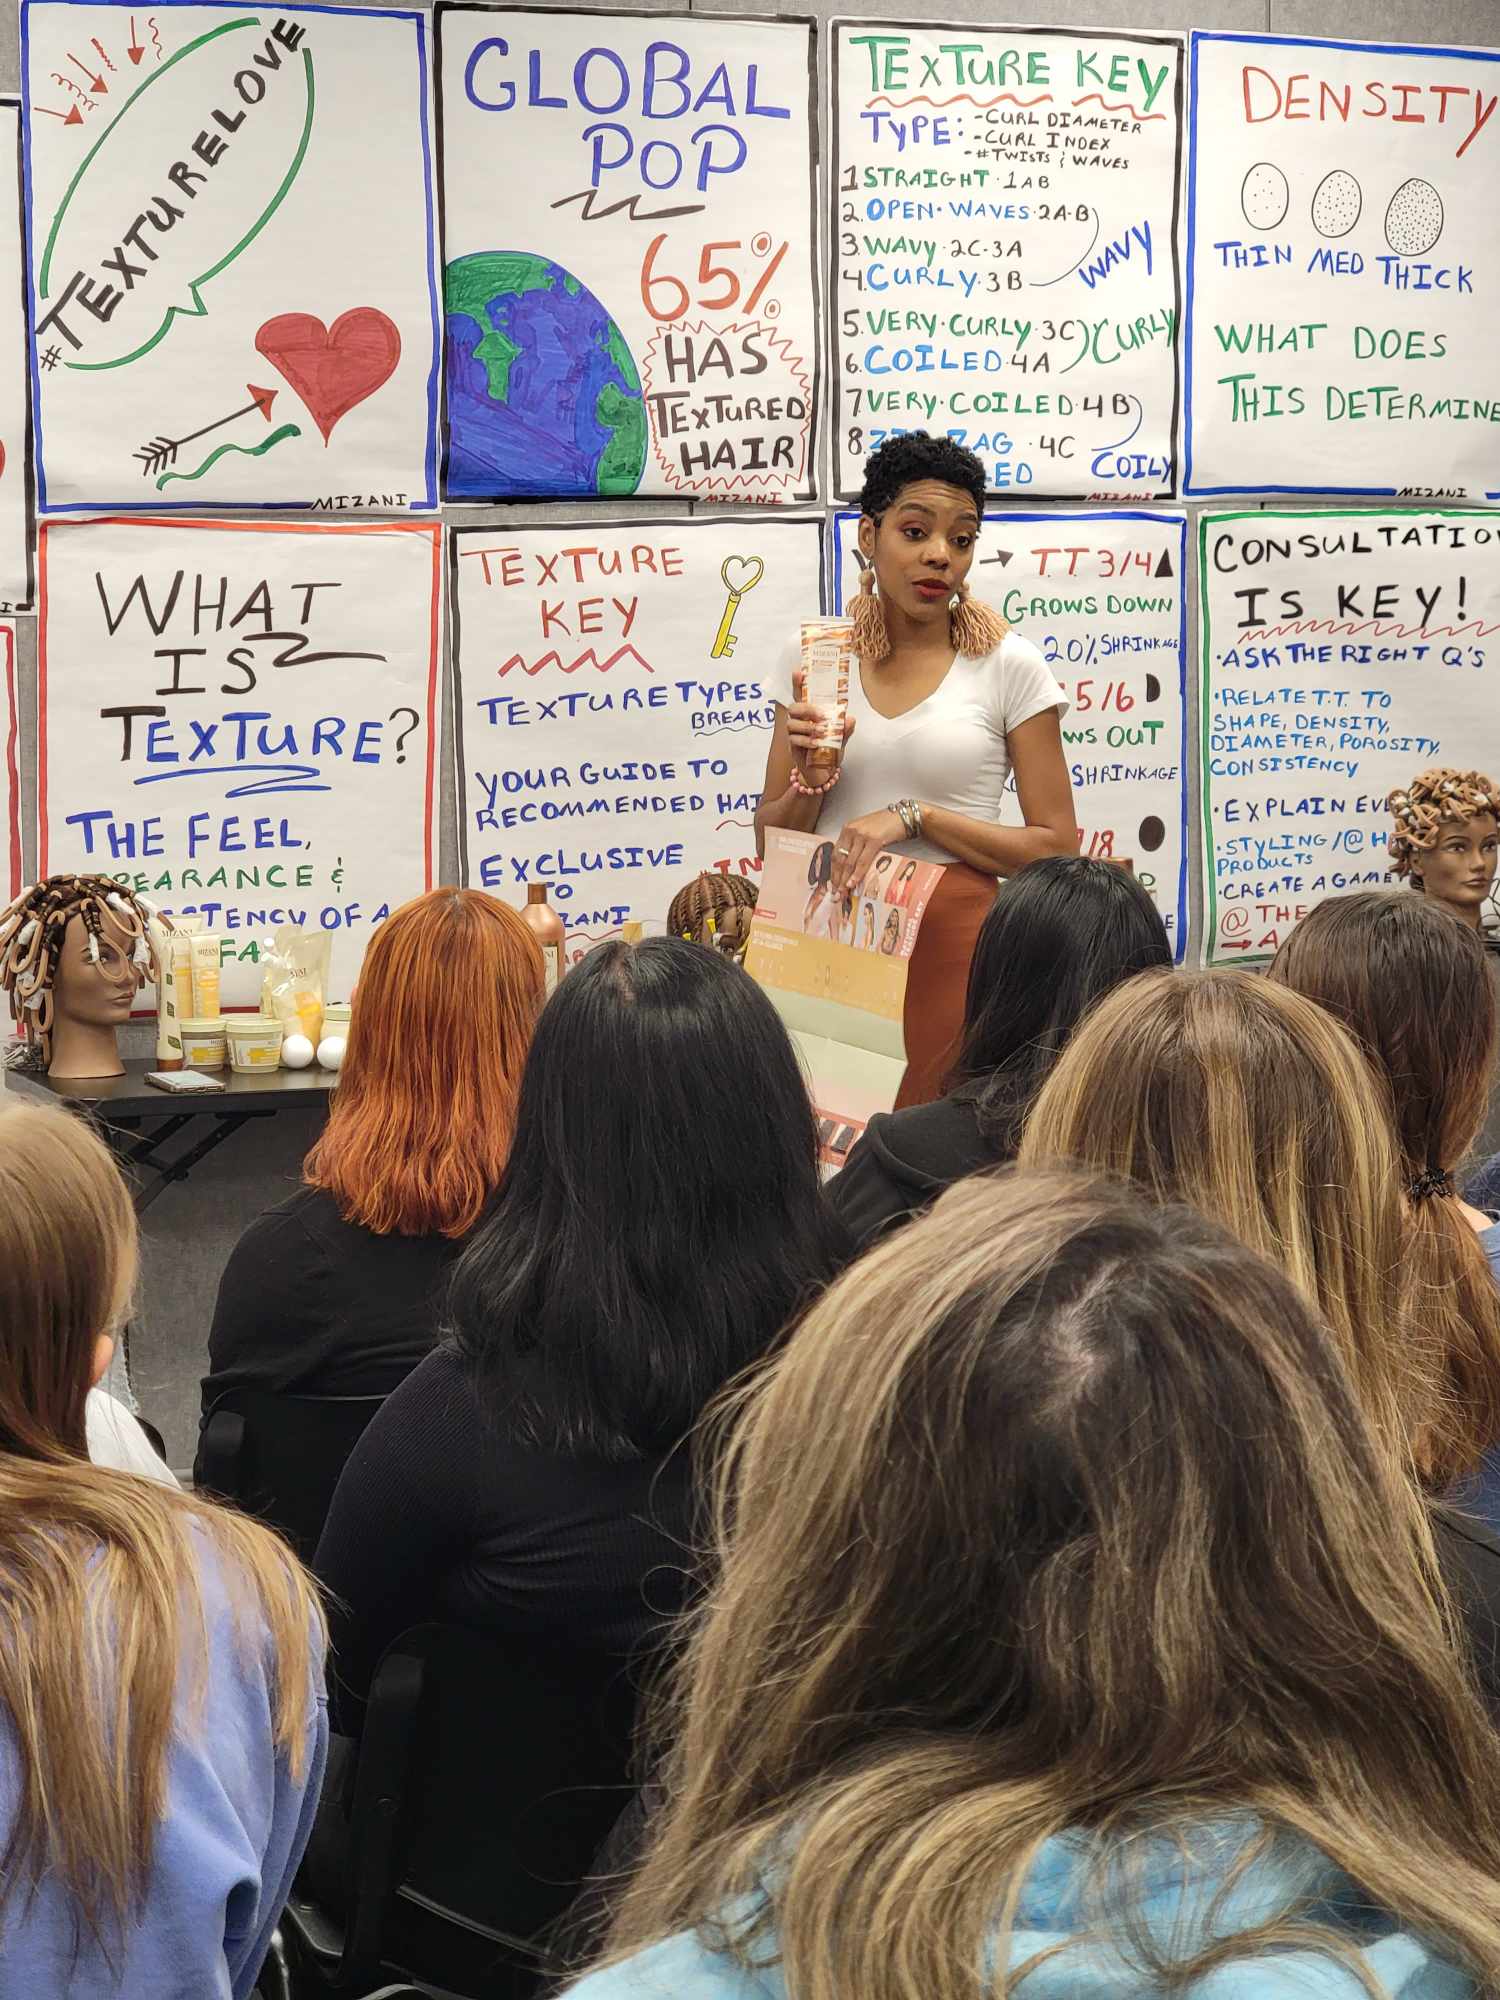 #TEXTURELOVE
MIZANI
GLOBAL
POP
65%
HAS
TEXTURED
HAIR
MIZANI
TEXTURE KEY
TYPE: -CURL DIAMETER
-CURL INDEX
-#TWISTS & WAVES
1 STRAIGHT·1AB
2. OPEN·WAVES·2A-B
3. WAVY·2C-3A
4. CURLY·3B
WAVY
5. VERY·CURLY·3C
6. COILED·4A
CURLY
7. VERY·COILED·4B
8. ZAG ·4C
COILY
MIZANI
DENSITY
THIN MED THICK
WHAT DOES
THIS DETERMINE
MIZANI
WHAT
IS
TEXTURE?
THE FEEL,
PEARANCE &
STENCY OF A
FA
TEXTURE
KEY
TEXTURE TYPES
BREAKD
YOUR GUIDE TO
RECOMMENDED HAI
EXCLUSIVE
TO
ZANI
→ T.T. 3/4
GROWS DOWN
20% SHRINKAGE
5/6
WS OUT
SHRINKAGE
7/8
CONSULTATIO
IS KEY!
·ASK THE RIGHT Q'S
·RELATE T.T. TO
SHAPE, DENSITY,
DIAMETER, POROSITY,
CONSISTENCY
·EXPLAIN EVE
·STYLING/@ H
PRODUCTS
·CREATE A GAME
@ THE
→ A
MIZANI
MIZANI